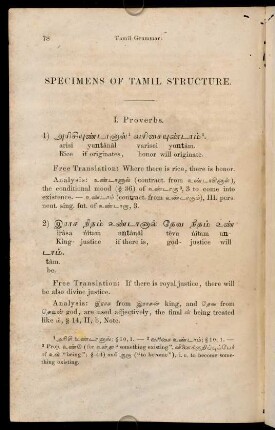 78 Tamil Grammar.
SPECIMENS OF TAMIL STRUCTURE.
I. Proverbs.
1) அரிசியுண்டானால்¹ வரிசையுண்டாம்².
arisi yuṇtânâl varisei yuṇtâm.
Rice if originates, honor will originate.
Free Translation: Where there is rice, there is honor.
Analysis: உண்டானால் (contract from உண்டாயினால்),
the conditional mood (§ 36) of உண்டாகு³, 3 to come into
existence. — உண்டாம் (contract from உண்டாகும்), III. pers.
neut. sing. fut. of உண்டாகு, 3.
2) இராச நீதம் உண்டானால் தேவ நீதம் உண்
irâsa nîtam uṇtânâl têva nîtam un
King- justice if there is, god- justice will
டாம்.
tâm.
be.
Free Translation: If there is royal justice, there will
be also divine justice.
Analysis: இராச from இராசன் king, and தேவ from
தேவன் god, are used adjectively, the final ன் being treated
like ம், § 14, II, b, Note.
¹ அரிசி உண்டானால்; § 10, 1. — ² வரிசை உண்டாம்; § 10, 1. —
³ Prop. உண்டு
thing existing.